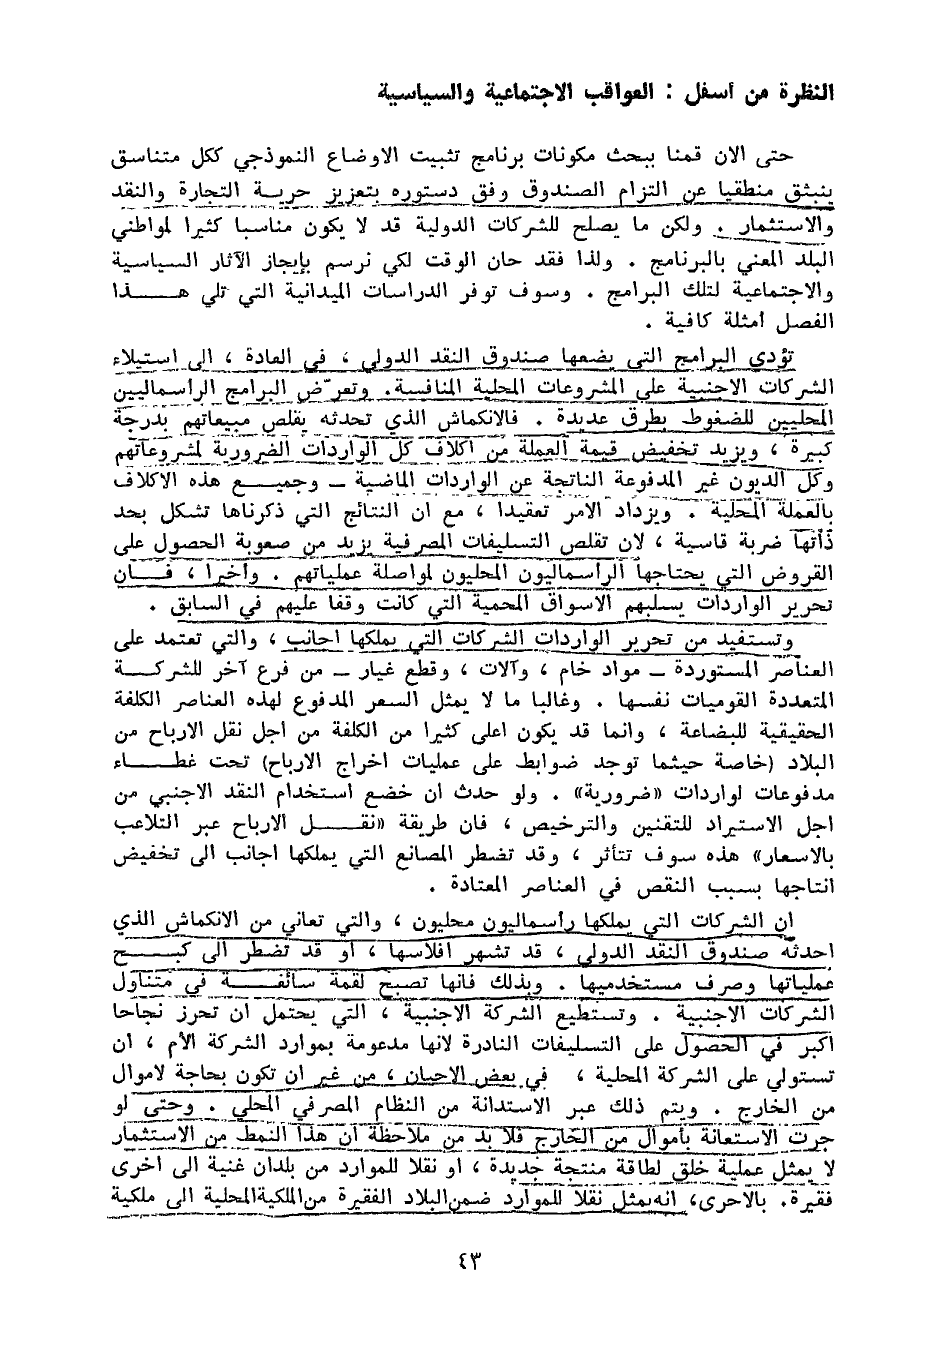 النظرة من اسفل : العواقب الاجتماعية والسياسية
حتى الان قمنا ببحث مكونات برنامج تثبيت الاوضاع النموذجي ككل متناسق
ينبثق منطقيا عن التزام الصندوق وفق دستوره بتعزيز حريـة التجارة والنقد
والاستثمار . ولكن ما يصلح للشركات الدولية قد لا يكون مناسبا كثيرا لمواطني
البلد المعني بالبرنامج . ولذا فقد حان الوقت لكي نرسم بإيجاز الآثار السياسية
والاجتماعية لتلك البرامج . وسوف توفر الدراسات الميدانية التي تلي هـــــذا
الفصل أمثلة كافية .
تؤدي البرامج التي يضعها صندوق النقد الدولي ، في العادة ، الى استيلاء
الشركات الاجنبية على المشروعات المحلية المنافسة. وتعرّض البرامج الراسماليين
المحليين للضغوط بطرق عديدة . فالانكماش الذي تحدثه يقلص مبيعاتهم بدرجة
كبيرة ، ويزيد تخفيض قيمة العملة من اكلاف كل الواردات الضرورية لمشروعاتهم
وكل الديون غير المدفوعة الناتجة عن الواردات الماضية ــ وجميـــع هذه الاكلاف
بالعملة المحلية . ويزداد الامر تعقيدا ، مع ان النتائج التي ذكرناها تشكل بحد
ذاتها ضربة قاسية ، لان تقلص التسليفات المصرفية يزيد من صعوبة الحصول على
القروض التي يحتاجها الرأسماليون المحليون لمواصلة عملياتهم . وأخيرا ، فـــان
تحرير الواردات يسلبهم الاسواق المحمية التي كانت وقفا عليهم في السابق .
وتستفيد من تحرير الواردات الشركات التي يملكها اجانب ، والتي تعتمد على
العناصر المستوردة ــ مواد خام ، وآلات ، وقطع غيار ــ من فرع آخر للشركـــة
المتعددة القوميات نفسها . وغالبا ما لا يمثل السعر المدفوع لهذه العناصر الكلفة
الحقيقية للبضاعة ، وانما قد يكون اعلى كثيرا من الكلفة من اجل نقل الارباح من
البلاد (خاصة حيثما توجد ضوابط على عمليات اخراج الارباح) تحت غطـــــاء
مدفوعات لواردات «ضرورية» . ولو حدث ان خضع استخدام النقد الاجنبي من
اجل الاستيراد للتقنين والترخيص ، فان طريقة «نقـــل الارباح عبر التلاعب
بالاسعار» هذه سوف تتأثر ، وقد تضطر المصانع التي يملكها اجانب الى تخفيض
انتاجها بسبب النقص في العناصر المعتادة .
ان الشركات التي يملكها رأسماليون محليون ، والتي تعاني من الانكماش الذي
احدثه صندوق النقد الدولي ، قد تشهر افلاسها ، او قد تضطر الى كبـــــح
عملياتها وصرف مستخدميها . وبذلك فانها تصبح لقمة سائغـــة في متناول
الشركات الاجنبية . وتستطيع الشركة الاجنبية ، التي يحتمل ان تحرز نجاحا
اكبر في الحصول على التسليفات النادرة لانها مدعومة بموارد الشركة الأم ، ان
تستولي على الشركة المحلية ، في بعض الاحيان ، من غير ان تكون بحاجة لاموال
من الخارج . ويتم ذلك عبر الاستدانة من النظام المصرفي المحلي . وحتى لو
جرت الاستعانة بأموال من الخارج فلا بد من ملاحظة ان هذا النمط من الاستثمار
لا يمثل عملية خلق لطاقة منتجة جديدة ، او نقلا للموارد من بلدان غنية الى اخرى
فقيرة. بالاحرى، انه يمثل نقلا للموارد ضمن البلاد الفقيرة من الملكية المحلية الى ملكية
٤٣